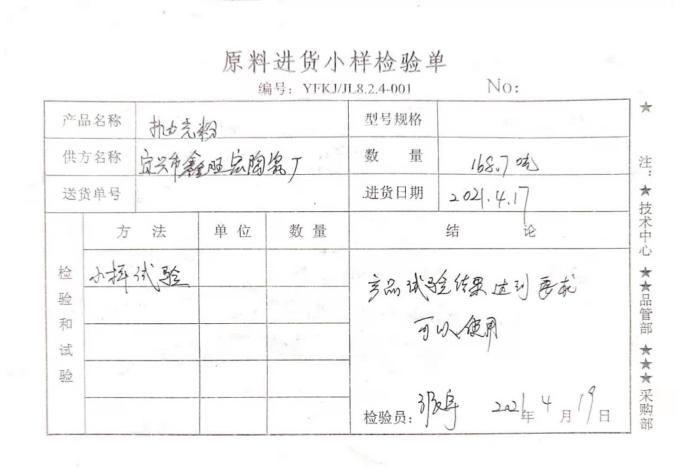 原料进货小样检验单
编号：YFKJ/JL8.2.4-001 No:
产品名称 型号规格
供方名称 宜兴市鑫旺宏陶瓷厂 数量 168.7吨
送货单号 进货日期 2021.4.17
检验和试验 方法 单位 数量 结论
小样试验
产品试验结果达到要求
可以使用
检验员： 2021年4月19日
注：★技术中心 ★★品管部 ★★★采购部
★